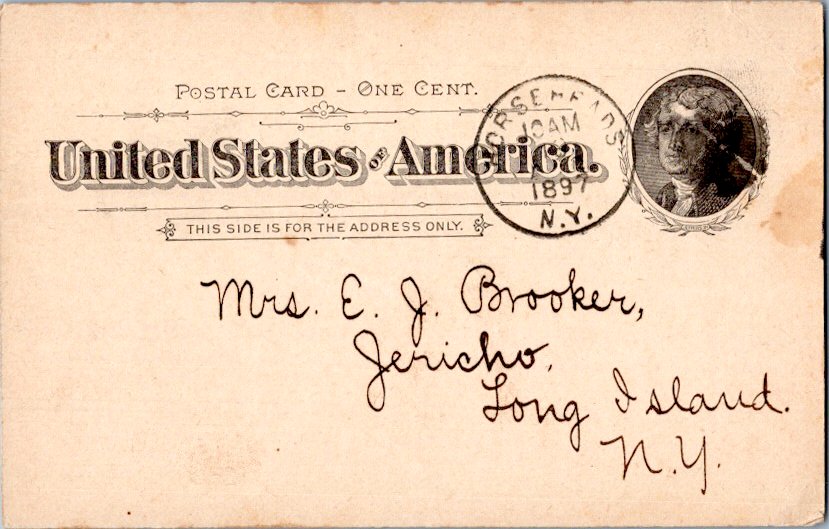 POSTAL CARD - ONE CENT.
United States OF America.
THIS SIDE IS FOR THE ADDRESS ONLY.
ORSEHEADS
10AM
1897
N.Y.
Mrs. E. J. Brooker,
Jericho,
Long Island.
N.Y.